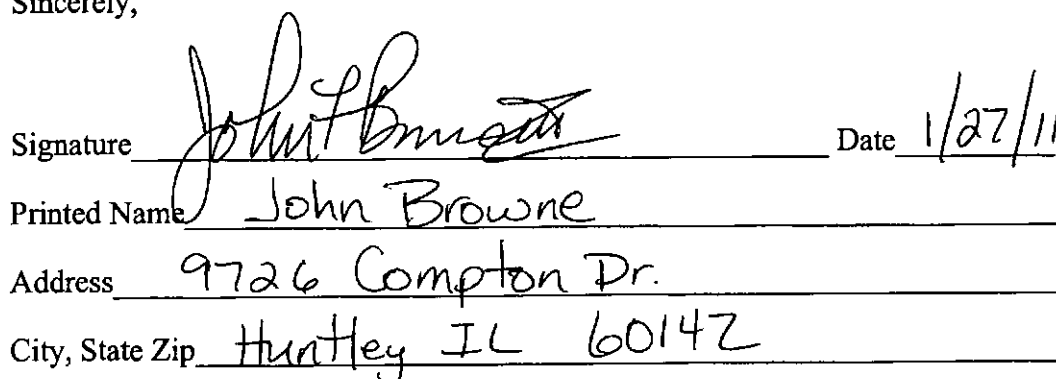 Sincerely,
Signature John Date 1/27/11
Printed Name John Browne
Address 9726 Compton Dr.
City, State Zip Huntley IL 60142